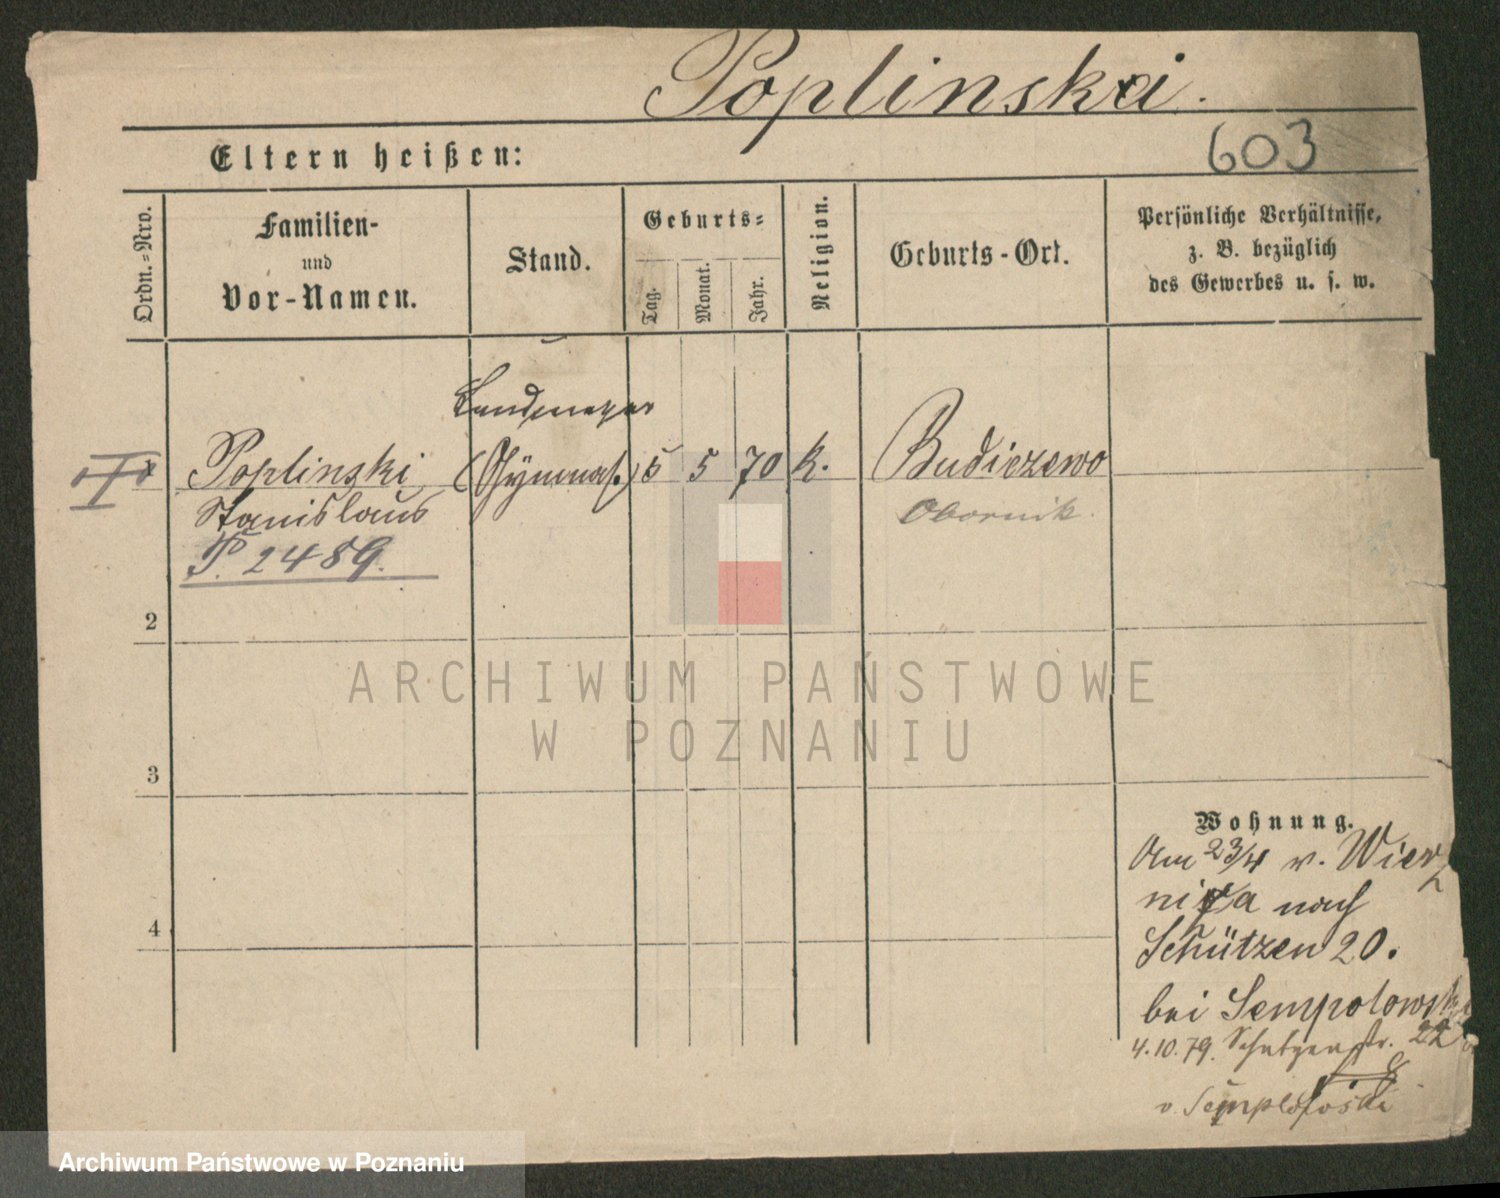 Poplinski.
603
Eltern heißen:
Ordn.-Nro.
Familien-
und
Vor-Namen.
Stand.
Geburts-
Tag.
Monat.
Jahr.
Religion.
Geburts-Ort.
Persönliche Verhältnisse,
z. B. bezüglich
des Gewerbes u. s. w.
Poplinski
Stanislaus
P. 2489.
(Gymnas.)
5 5 70
k.
Budiczewo
Obornik.
2
3
4
Wohnung.
Am 23/4 v. Wierz
nica nach
Schützen 20.
bei Sempolowski
4.10.79. Schützenstr. 22
v.
ARCHIWUM PAŃSTWOWE
W POZNANIU
Archiwum Państwowe w Poznaniu